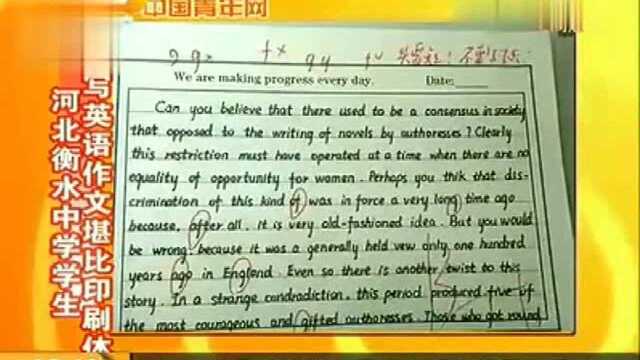 中国青年网
河北衡水中学学生
写英语作文堪比印刷体
We are making progress every day. Date:
Can you believe that there used to be a consensus in society
that opposed to the writing of novels by authoresses? Clearly
this restriction must have operated at a time when there are no
equality of opportunity for women. Perhaps you thik that dis-
crimination of this kind of was in force a very long time ago
because, after all, it is very old-fashioned idea. But you would
be wrong, because it was a generally held vew only one hundred
years ago in England. Even so there is another twist to this
story. In a strange condradiction, this period produced five of
the most courageous and gifted authoresses. Those who got round